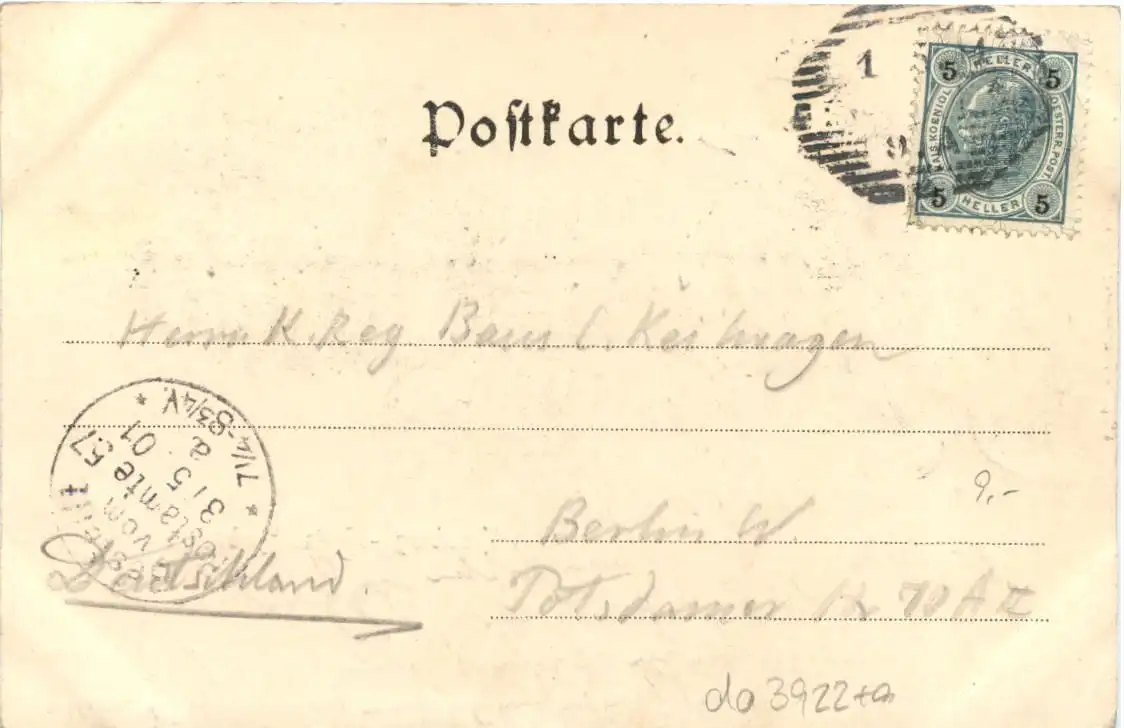 Postkarte.
1
5 HELLER 5
KAIS. KOENIGL. OESTERR. POST.
5 HELLER 5
Herrn K. Reg. Baus
Berlin W.
Potsdamer
Deutschland.
Bestellt
vom
Postamte 57
3/5.01
7 1/4-8 3/4 V.
9,-
do 3922